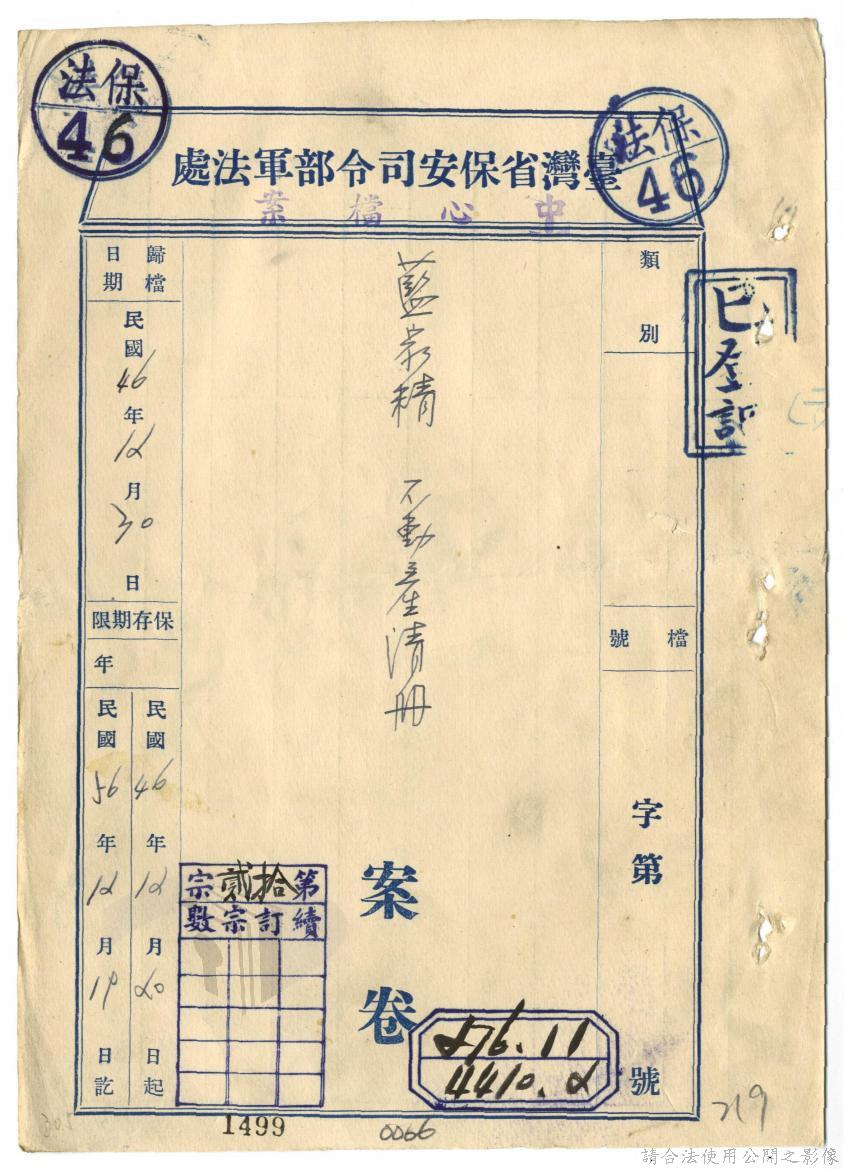 法保
46
法保
46
臺灣省保安司令部軍法處
中心檔案
類別
已登記
檔號
字第
號
576.11
4410.2
藍家精 不動產清冊
案卷
第拾貳宗
續訂宗數
歸檔日期
民國46年12月30日
保存期限
年
民國46年12月20日起
民國56年12月19日訖
1499
0066
719
請合法使用公開之影像